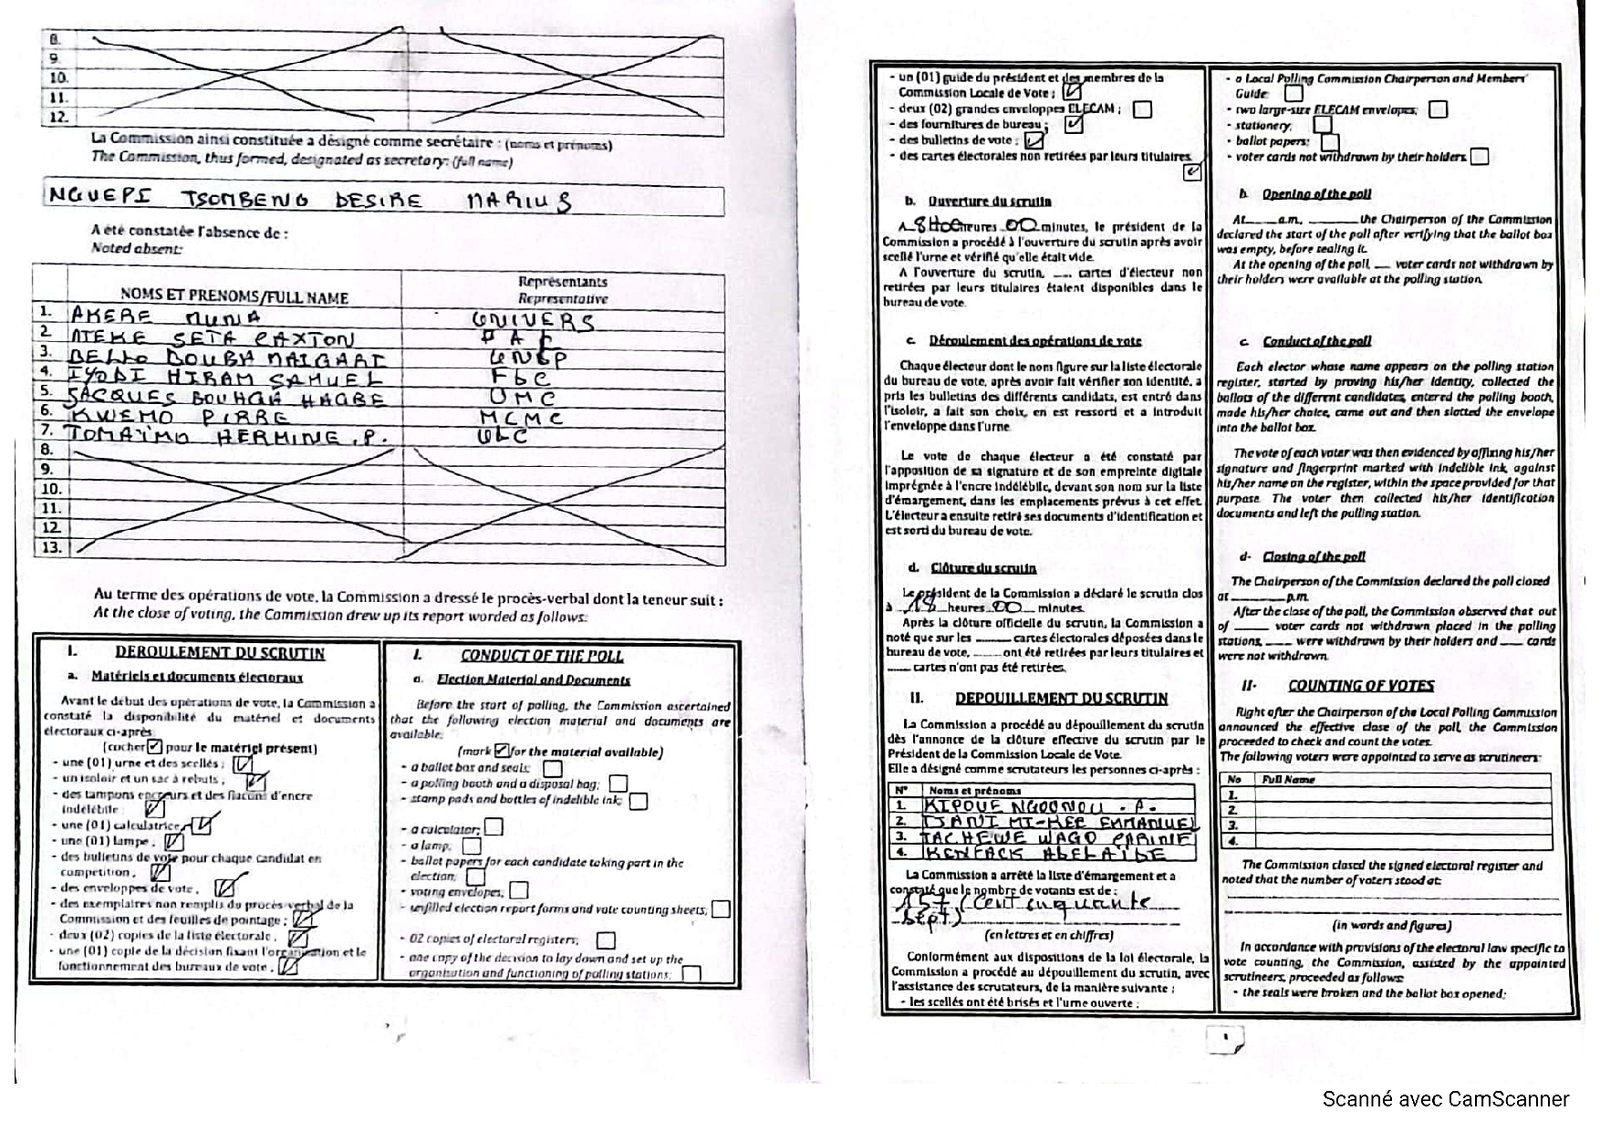 8.
9.
10.
11.
12.
La Commission ainsi constituée a désigné comme secrétaire : (noms et prénoms)
The Commission, thus formed, designated as secretary: (full name)
NGUEPI TSOMBENG DESIRE MARIUS
A été constatée l'absence de :
Noted absent:
NOMS ET PRENOMS/FULL NAME
Représentants
Representative
1. AKERE MUNA UNIVERS
2. ATEKE SETA CAXTON PAL
3. BELLO BOUBA MAIGARI UNDP
4. IYODI HIRAM SAMUEL FDC
5. JACQUES BOUHGA HAGBE UMC
6. KWEMO PIRRE MCMC
7. TOMAÏMO HERMINE .P. ULC
8.
9.
10.
11.
12.
13.
Au terme des opérations de vote, la Commission a dressé le procès-verbal dont la teneur suit :
At the close of voting, the Commission drew up its report worded as follows:
I. DEROULEMENT DU SCRUTIN
a. Matériels et documents électoraux
Avant le début des opérations de vote, la Commission a
constaté la disponibilité du matériel et documents
électoraux ci-après
(cocher ☑ pour le matériel présent)
- une (01) urne et des scellés ; ☑
- un isoloir et un sac à rebuts ; ☑
- des tampons encreurs et des flacons d'encre
indélébile ☑
- une (01) calculatrice ☑
- une (01) lampe ; ☑
- des bulletins de vote pour chaque candidat en
compétition ; ☑
- des enveloppes de vote ; ☑
- des exemplaires non remplis du procès-verbal de la
Commission et des feuilles de pointage ; ☑
- deux (02) copies de la liste électorale ; ☑
- une (01) copie de la décision fixant l'organisation et le
fonctionnement des bureaux de vote ; ☑
I. CONDUCT OF THE POLL
a. Election Material and Documents
Before the start of polling, the Commission ascertained
that the following election material and documents are
available:
(mark ☑ for the material available)
- a ballot box and seals; ☐
- a polling booth and a disposal bag; ☐
- stamp pads and bottles of indelible ink; ☐
- a calculator; ☐
- a lamp; ☐
- ballot papers for each candidate taking part in the
election; ☐
- voting envelopes; ☐
- unfilled election report forms and vote counting sheets; ☐
- 02 copies of electoral registers; ☐
- one copy of the decision to lay down and set up the
organisation and functioning of polling stations; ☐
- un (01) guide du président et des membres de la
Commission Locale de Vote ; ☑
- deux (02) grandes enveloppes ELECAM ; ☐
- des fournitures de bureau ; ☑
- des bulletins de vote ; ☑
- des cartes électorales non retirées par leurs titulaires
☑
b. Ouverture du scrutin
A 8H00 heures 00 minutes, le président de la
Commission a procédé à l'ouverture du scrutin après avoir
scellé l'urne et vérifié qu'elle était vide.
A l'ouverture du scrutin, ___ cartes d'électeur non
retirées par leurs titulaires étaient disponibles dans le
bureau de vote.
c. Déroulement des opérations de vote
Chaque électeur dont le nom figure sur la liste électorale
du bureau de vote, après avoir fait vérifier son identité, a
pris les bulletins des différents candidats, est entré dans
l'isoloir, a fait son choix, en est ressorti et a introduit
l'enveloppe dans l'urne.
Le vote de chaque électeur a été constaté par
l'apposition de sa signature et de son empreinte digitale
imprégnée à l'encre indélébile, devant son nom sur la liste
d'émargement, dans les emplacements prévus à cet effet.
L'électeur a ensuite retiré ses documents d'identification et
est sorti du bureau de vote.
d. Clôture du scrutin
Le président de la Commission a déclaré le scrutin clos
à 18 heures 00 minutes.
Après la clôture officielle du scrutin, la Commission a
noté que sur les ___ cartes électorales déposées dans le
bureau de vote, ___ ont été retirées par leurs titulaires et
___ cartes n'ont pas été retirées.
II. DEPOUILLEMENT DU SCRUTIN
La Commission a procédé au dépouillement du scrutin
dès l'annonce de la clôture effective du scrutin par le
Président de la Commission Locale de Vote.
Elle a désigné comme scrutateurs les personnes ci-après :
N° Noms et prénoms
1. KIPOUE NGOUNOU . A .
2. DJANI MI-KEE EMMANUEL
3. TACHEWE WAGO CARINE
4. KENFACK ADELAÏDE
La Commission a arrêté la liste d'émargement et a
constaté que le nombre de votants est de :
157 (cent cinquante
sept)
(en lettres et en chiffres)
Conformément aux dispositions de la loi électorale, la
Commission a procédé au dépouillement du scrutin, avec
l'assistance des scrutateurs, de la manière suivante :
- les scellés ont été brisés et l'urne ouverte ;
- a Local Polling Commission Chairperson and Members'
Guide; ☐
- two large-size ELECAM envelopes; ☐
- stationery; ☐
- ballot papers; ☐
- voter cards not withdrawn by their holders ☐
b. Opening of the poll
At ___ a.m, ___ the Chairperson of the Commission
declared the start of the poll after verifying that the ballot box
was empty, before sealing it.
At the opening of the poll, ___ voter cards not withdrawn by
their holders were available at the polling station.
c. Conduct of the poll
Each elector whose name appears on the polling station
register, started by proving his/her identity, collected the
ballots of the different candidates, entered the polling booth,
made his/her choice, came out and then slotted the envelope
into the ballot box.
The vote of each voter was then evidenced by affixing his/her
signature and fingerprint marked with indelible ink, against
his/her name on the register, within the space provided for that
purpose. The voter then collected his/her identification
documents and left the polling station.
d- Closing of the poll
The Chairperson of the Commission declared the poll closed
at ___ p.m.
After the close of the poll, the Commission observed that out
of ___ voter cards not withdrawn placed in the polling
stations, ___ were withdrawn by their holders and ___ cards
were not withdrawn.
II- COUNTING OF VOTES
Right after the Chairperson of the Local Polling Commission
announced the effective close of the poll, the Commission
proceeded to check and count the votes.
The following voters were appointed to serve as scrutineers:
No Full Name
1.
2.
3.
4.
The Commission closed the signed electoral register and
noted that the number of voters stood at:
(in words and figures)
In accordance with provisions of the electoral law specific to
vote counting, the Commission, assisted by the appointed
scrutineers, proceeded as follows:
- the seals were broken and the ballot box opened;
Scanné avec CamScanner